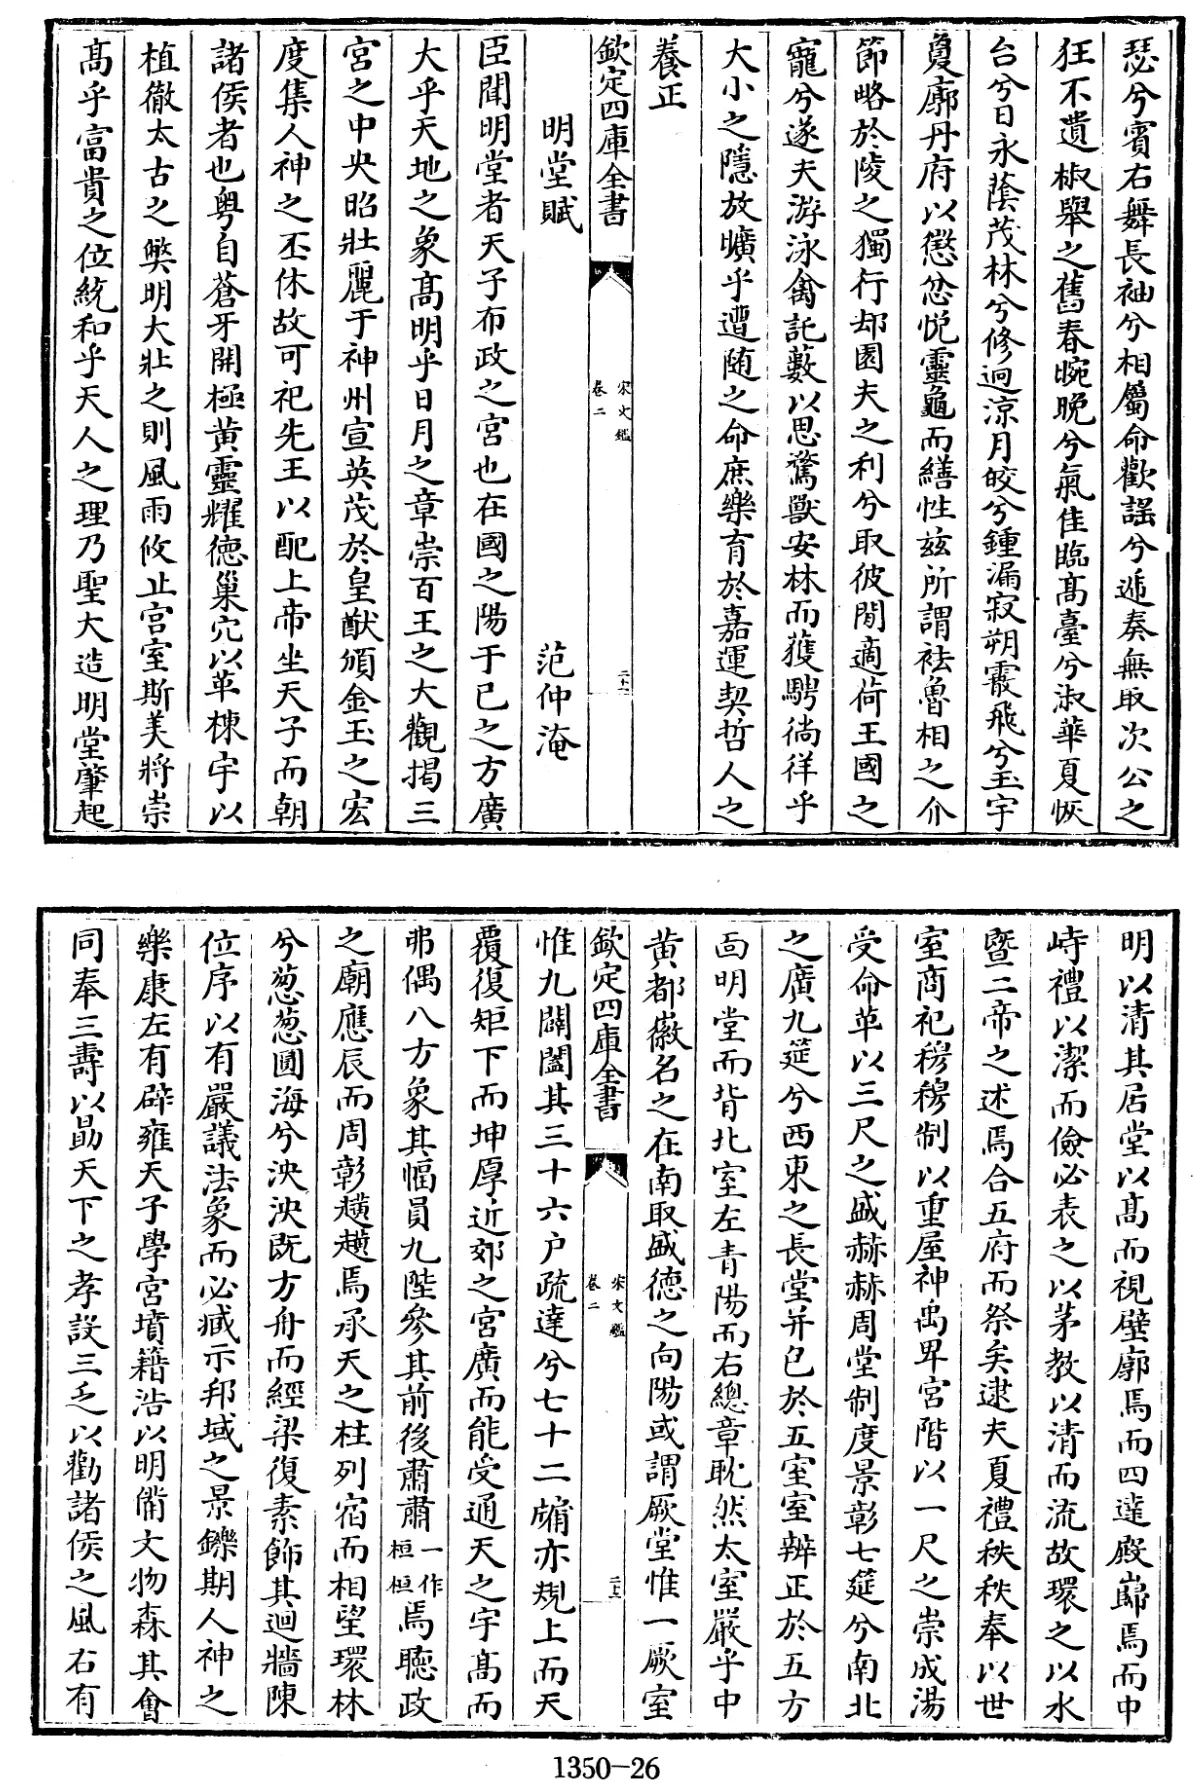 瑟兮賓右舞長袖兮相屬命歡謡兮遞奏無取次公之
狂不遺椒舉之舊春晼晚兮氣佳臨髙臺兮淑華夏恢
台兮日永蔭茂林兮修迥涼月皎兮鍾漏寂朔霰飛兮玉宇
敻廓丹府以懲忿悦靈龜而繕性兹所謂袪魯相之介
節略於陵之獨行却園夫之利兮取彼閒適荷王國之
寵兮遂夫游泳禽託藪以思驚獸安林而獲騁徜徉乎
大小之隱放曠乎遭随之命庶樂育於嘉運契哲人之
養正
欽定四庫全書
宋文鑑
卷二
明堂賦 范仲淹
臣聞明堂者天子布政之宮也在國之陽于巳之方廣
大乎天地之象髙明乎日月之章崇百王之大觀揭三
宮之中央昭壯麗于神州宣英茂於皇猷頒金玉之宏
度集人神之丕休故可祀先王以配上帝坐天子而朝
諸侯者也粤自蒼牙開極黄靈耀德巢穴以革棟宇以
植徹太古之弊明大壯之則風雨攸止宫室斯美將崇
髙乎富貴之位統和乎天人之理乃聖大造明堂肇起
明以清其居堂以髙而視壁廓焉而四達殿巋焉而中
峙禮以潔而儉必表之以茅教以清而流故環之以水
暨二帝之述焉合五府而祭矣逮夫夏禮秩秩奉以世
室商祀穆穆制以重屋神禹卑宮階以一尺之崇成湯
受命革以三尺之盛赫赫周堂制度景彰七筵兮南北
之廣九筵兮西東之長堂并包於五室室辨正於五方
面明堂而背北室左青陽而右總章耽然太室嚴乎中
黄都徽名之在南取盛德之向陽或謂厥堂惟一厥室
欽定四庫全書
宋文鑑
卷二
惟九闢闔其三十六户疏達兮七十二牖亦規上而天
覆復矩下而坤厚近郊之宮廣而能受通天之宇髙而
弗偶八方象其幅員九陛參其前後肅肅一作桓桓焉聽政
之廟應辰而周彰趪趪焉承天之柱列宿而相望環林
兮葱葱圓海兮泱泱既方舟而經梁復素飾其迴牆陳
位序以有嚴議法象而必臧示邦域之景鑠期人神之
樂康左有辟雍天子學宮墳籍浩以明備文物森其會
同奉三壽以勗天下之孝設三乏以勸諸侯之風右有
1350-26